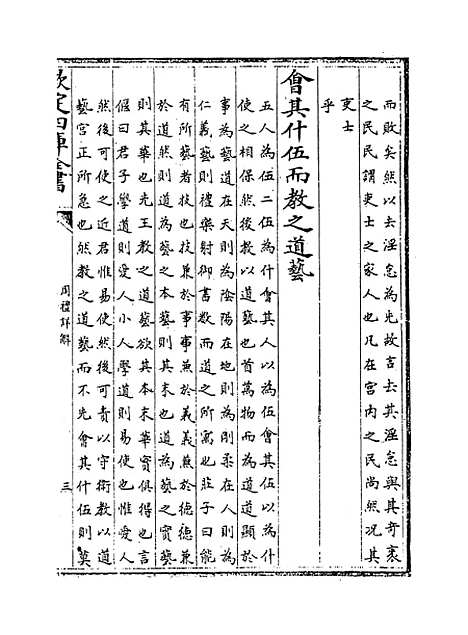 而敗矣然以去淫怠為先故言去其淫怠與其奇衺
之民民謂吏士之家人也凡在宫内之民尚然况其
吏士
乎
會其什伍而教之道藝
五人為伍二伍為什會其人以為伍會其伍以為什
使之相保然後教以道藝也首萬物而為道道顯於
事為藝道在天則為隂陽在地則為剛柔在人則為
仁義藝則禮樂射御書數而道之所寓也莊子曰能
有所藝者技也技兼於事事兼於義義兼於德德兼
於道然則道為藝之本藝則其末也道為藝之實藝
則其華也先王教之道藝欲其本末華實俱得也言
偃曰君子學道則愛人小人學道則易使也惟愛人
然後可使之近君惟易使然後可責以守衛教以道
藝宫正所急也然教之道藝而不先會其什伍則莫
欽定四庫全書
周禮詳解
三